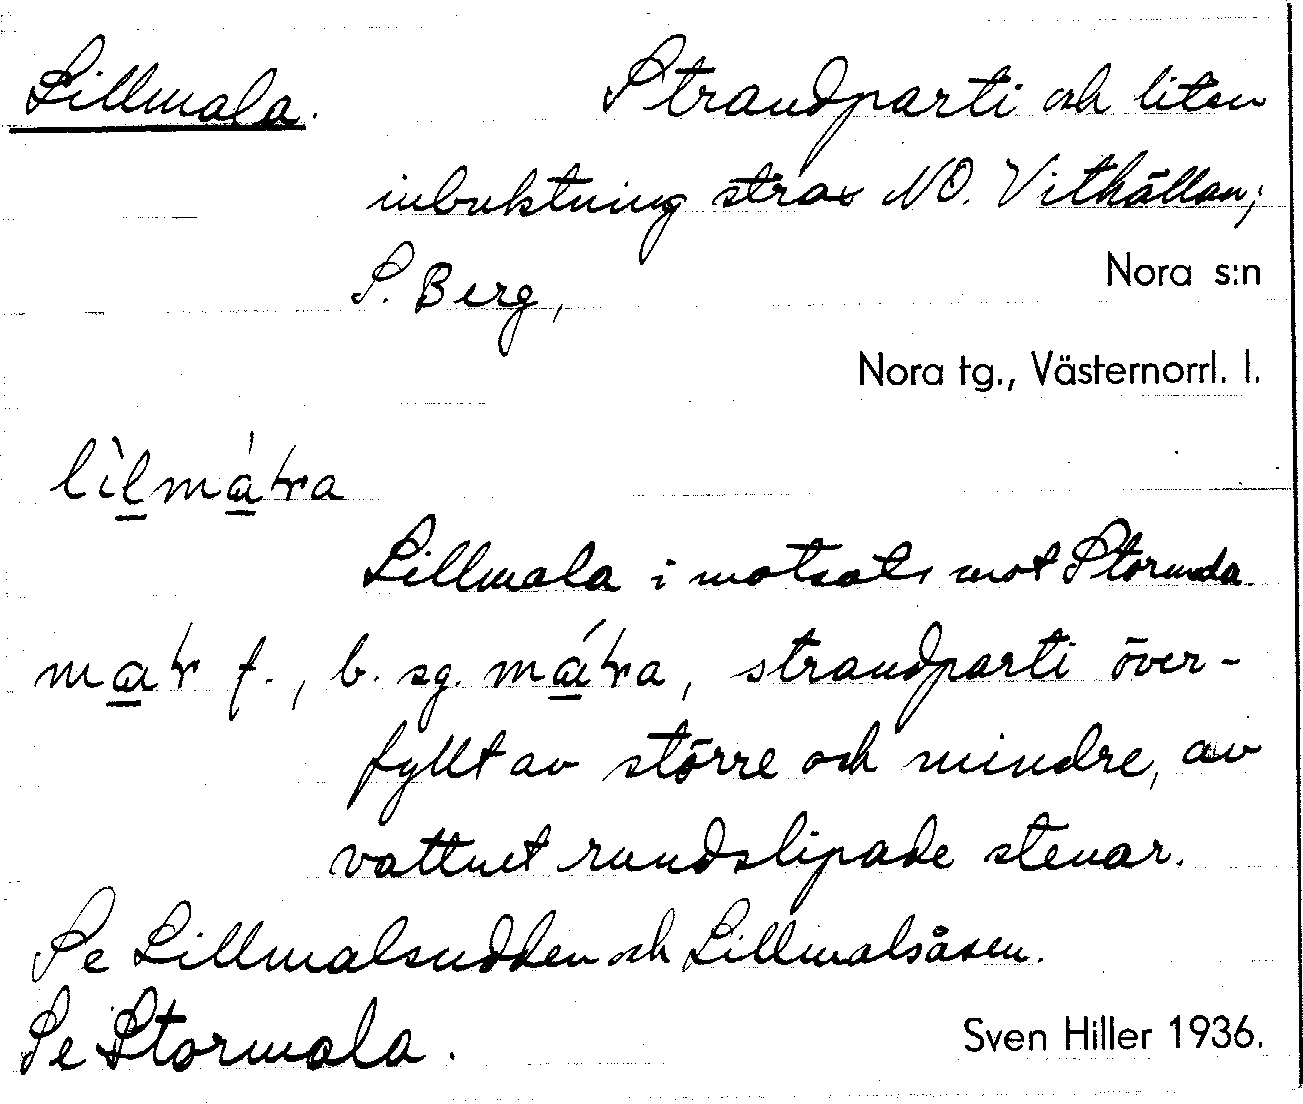 Lillmala. Strandparti och liten
inbuktning strax NO. Vithällan;
S. Berg, Nora s:n
Nora tg., Västernorrl. l.
Lillmala i motsats mot Stormala
f., b. sg. strandparti över-
fyllt av större och mindre, av
vattnet rundslipade stenar.
Se Lillmalsudden och Lillmalsåsen.
Se Stormala. Sven Hiller 1936.